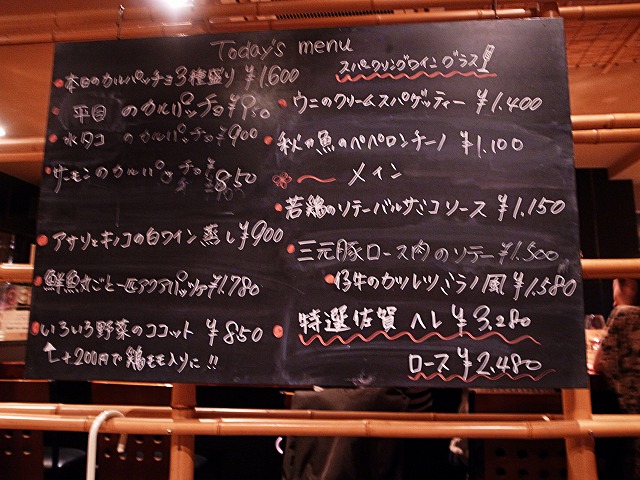 Today's menu
本日のカルパッチョ3種盛り ¥1600
平目 のカルパッチョ
水タコ のカルパッチョ ¥900
サーモンのカルパッチョ ¥850
アサリとキノコの白ワイン蒸し¥900
鮮魚丸ごと一匹アクアパッツァ¥1,780
いろいろ野菜のココット ¥850
+200円で鶏モモ入りに!!
スパークリングワイン グラス
ウニのクリームスパゲッティー ¥1.400
秋刀魚のペペロンチーノ ¥1.100
メイン
若鶏のソテーバルサミコソース ¥1,150
三元豚ロース肉のソテー ¥1.500
仔牛のカツレツミラノ風 ¥1,580
特選佐賀 ヘレ ¥3.280
ロース ¥2,480